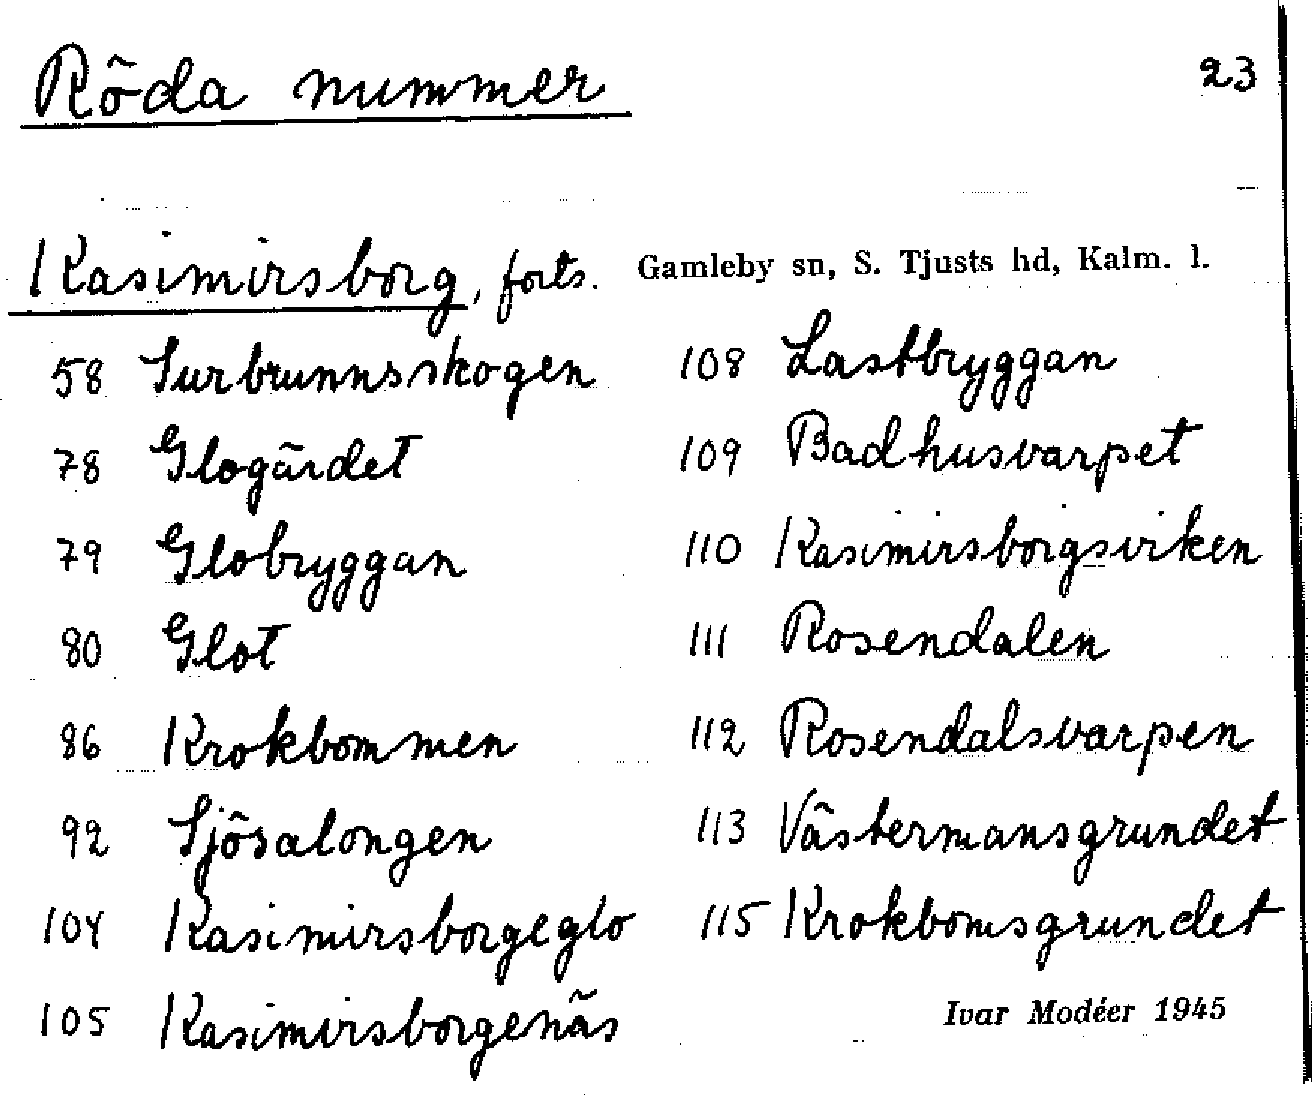 Röda nummer
23
Kasimirsborg, forts. Gamleby sn, S. Tjusts hd, Kalm. l.
58 Surbrunnsskogen
78 Glogärdet
79 Globryggan
80 Glot
86 Krokbommen
92 Sjösalongen
104 Kasimirsborgeglo
105 Kasimirsborgenäs
108 Lastbryggan
109 Badhusvarpet
110 Kasimirsborgsviken
111 Rosendalen
112 Rosendalsvarpen
113 Västermansgrundet
115 Krokbomsgrundet
Ivar Modéer 1945